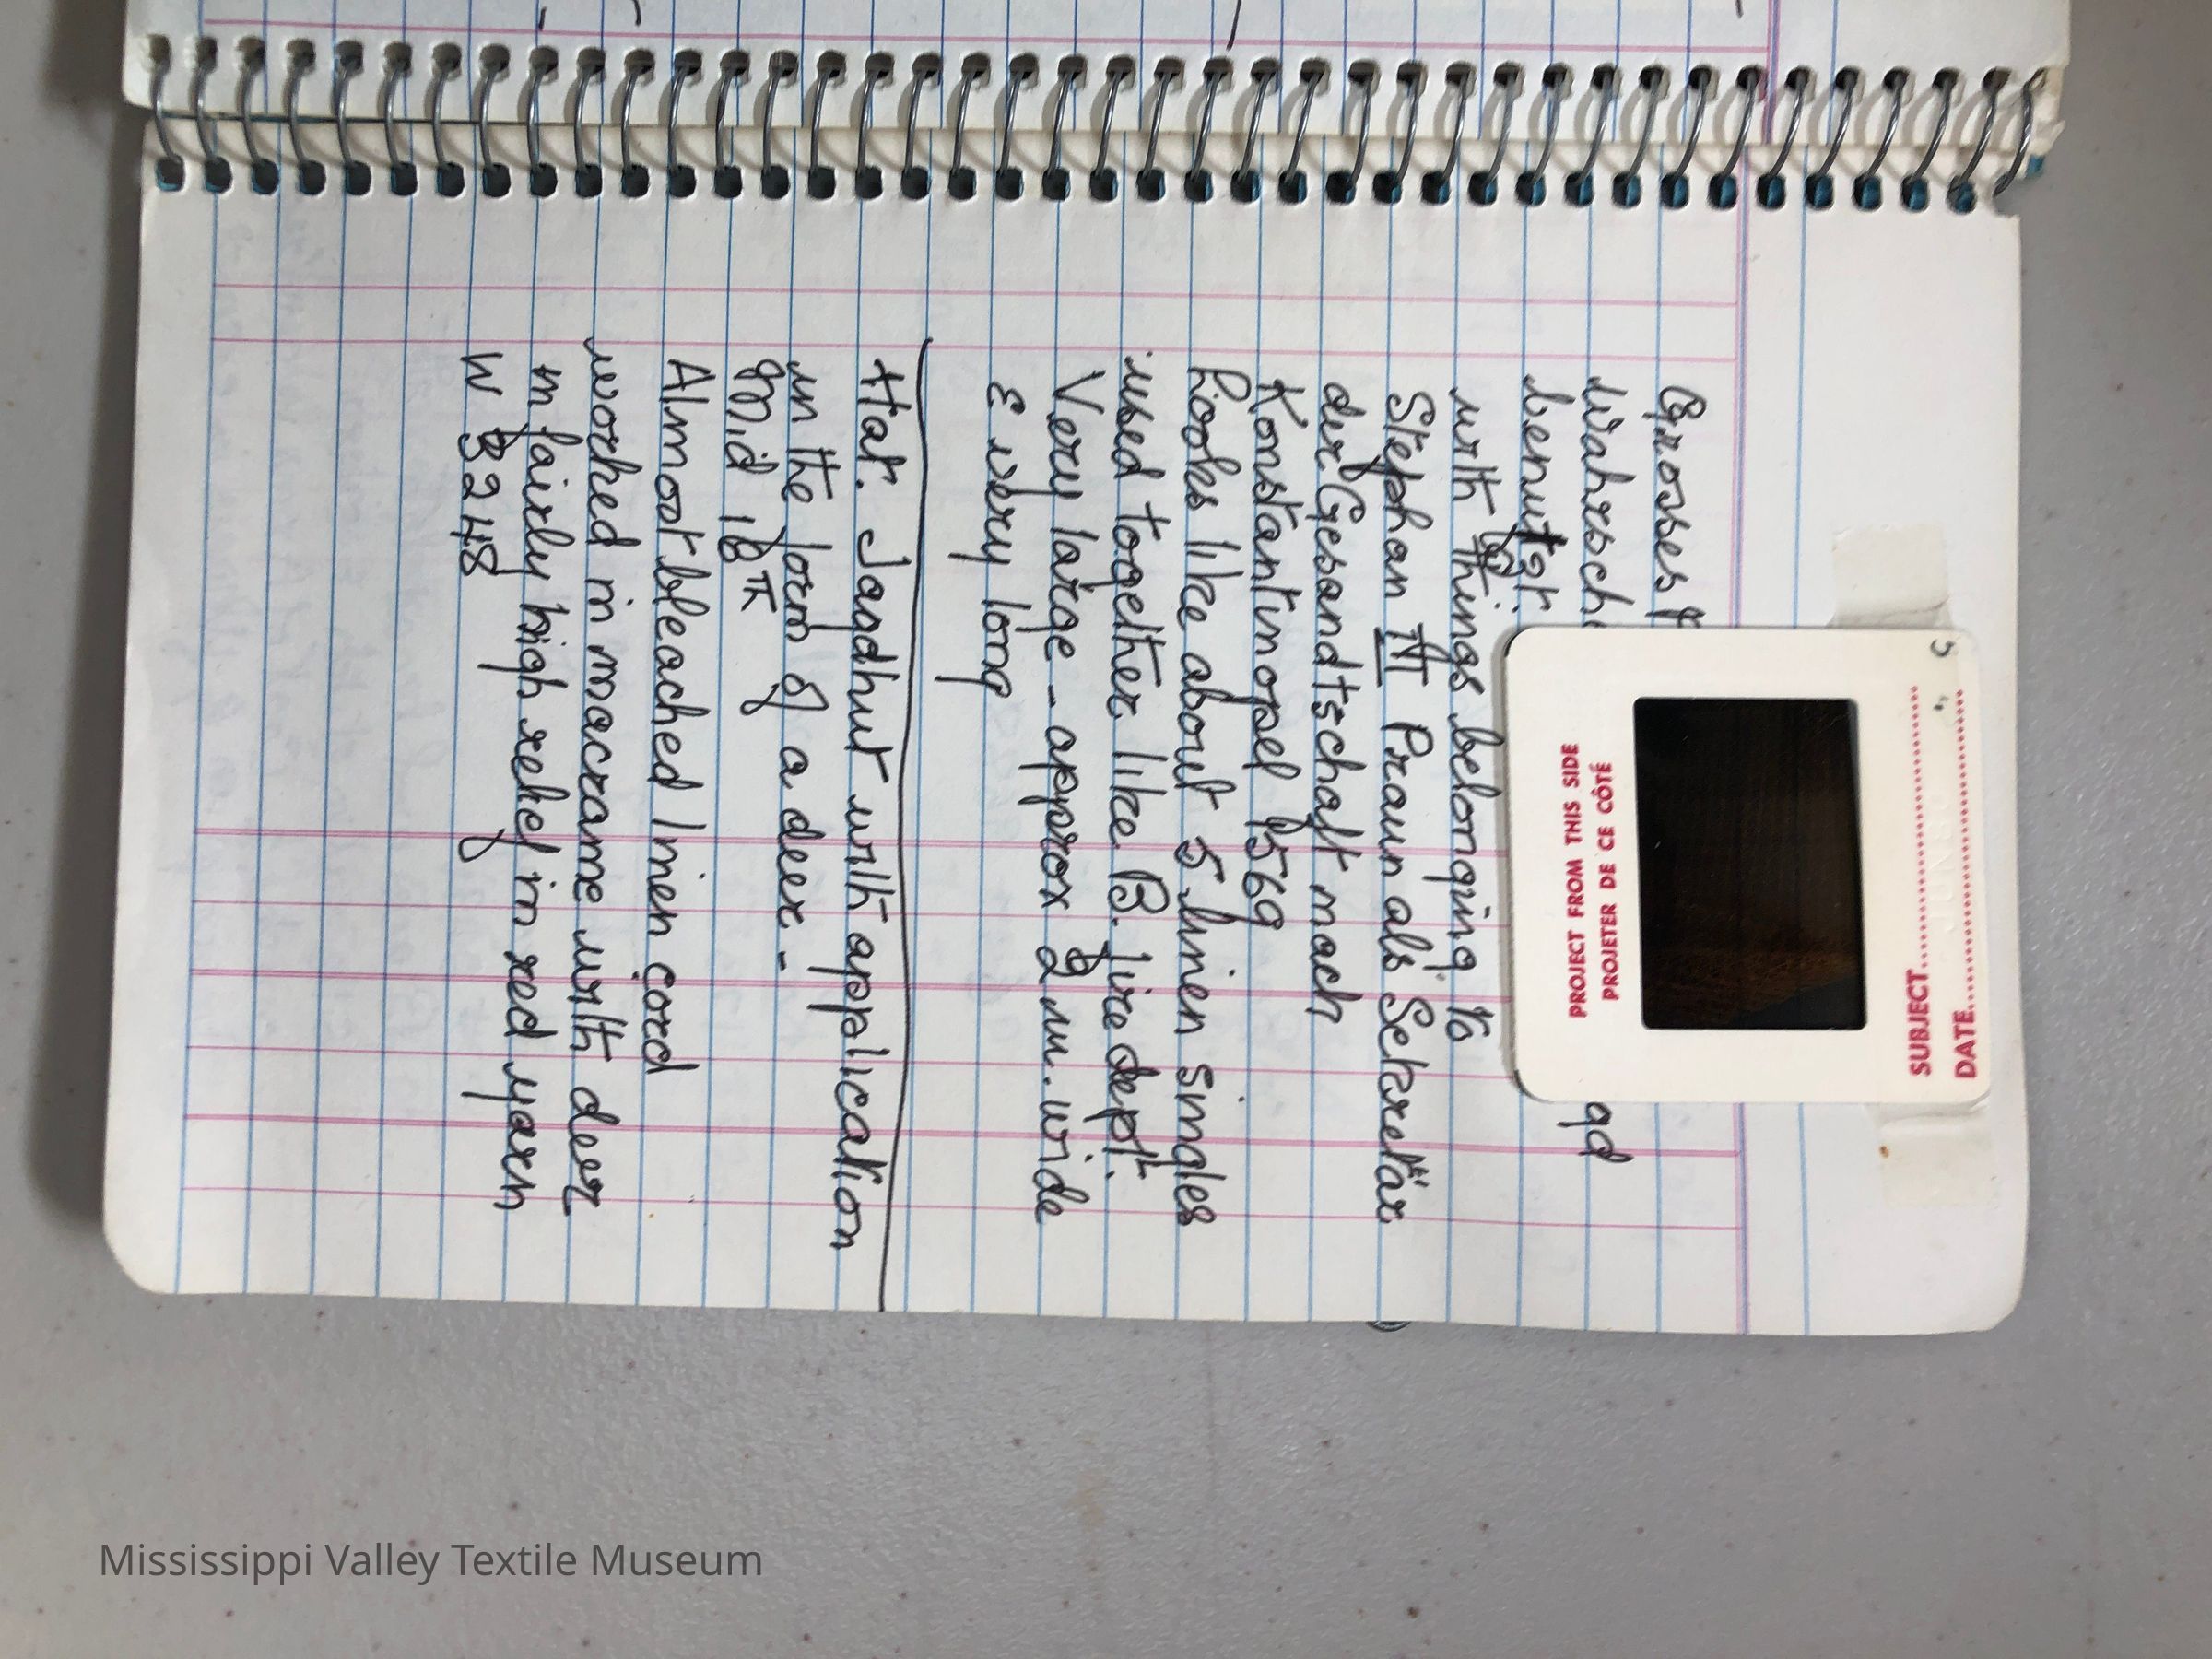 Grosses
Wahrsch gd
benutzt.
with things belonging to
Stephan III Praun als Sekretär
der Gesandtschaft nach
Konstantinopel 1569
Looks like about 5 linen singles
used together like B. fire dept.
Very large - approx 2 m. wide
& very long
Hat. Jagdhut with application
in the form of a deer -
Mid 18th
Almost bleached linen cord
worked in macrame with deer
in fairly high relief in red yarn
W 3248
PROJECT FROM THIS SIDE
PROJETER DE CE CÔTÉ
SUBJECT
DATE
Mississippi Valley Textile Museum